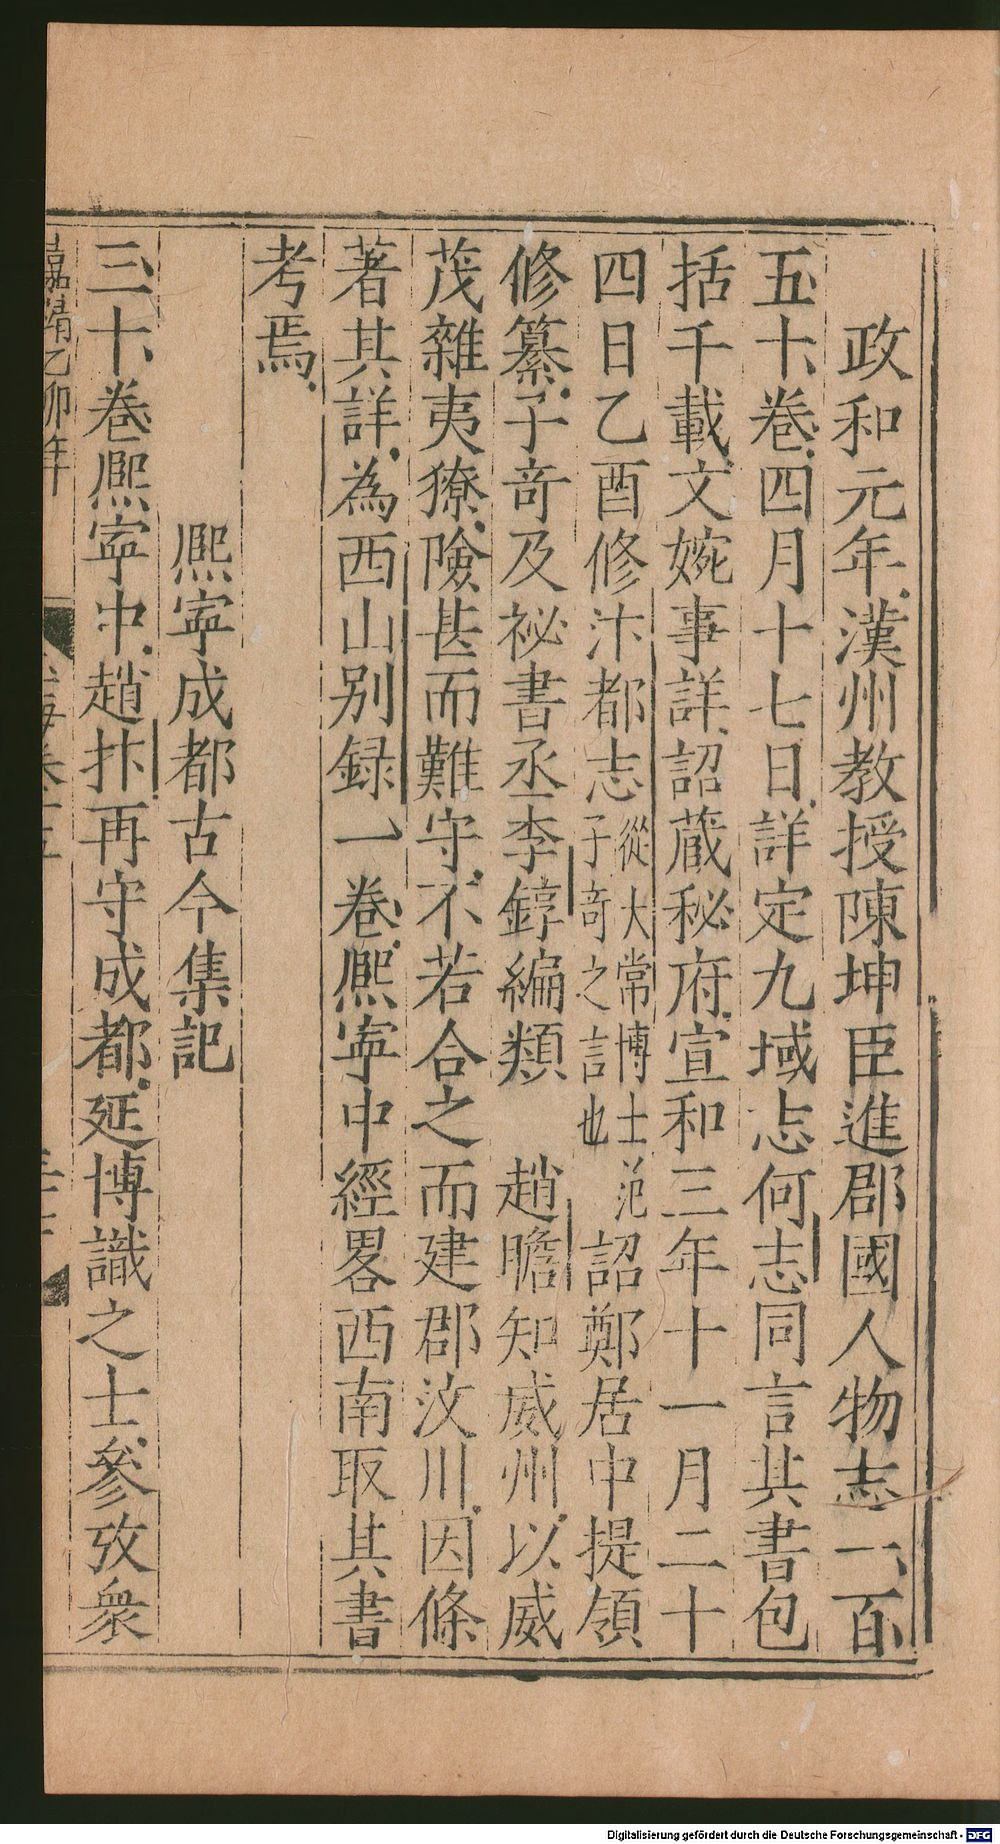 政和元年漢州教授陳坤臣進郡國人物志一百
五十卷四月十七日詳定九域志何志同言其書包
括千載文婉事詳詔蔵秘府宣和三年十一月二十
四日乙酉修汴都志從大常博士范子奇之言也詔鄭居中提領
修纂子奇及祕書丞李錞編類　趙瞻知威州以威
茂雜夷獠險甚而難守不若合之而建郡汶川因條
著其詳為西山别録一卷熈寜中經畧西南取其書
考焉
熈寜成都古今集記
三十卷熈寜中趙抃再守成都延博識之士參攷衆
嘉靖乙卯年
Digitalisierung gefördert durch die Deutsche Forschungsgemeinschaft - DFG